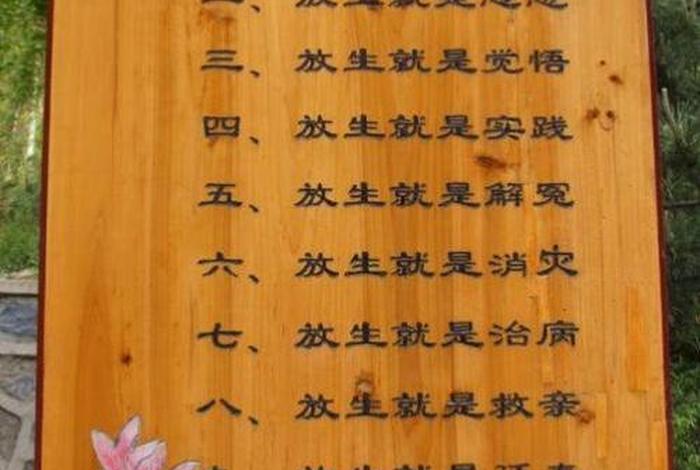 二、放生就是慈悲
三、放生就是觉悟
四、放生就是实践
五、放生就是解冤
六、放生就是消灾
七、放生就是治病
八、放生就是救亲
放生就是延寿